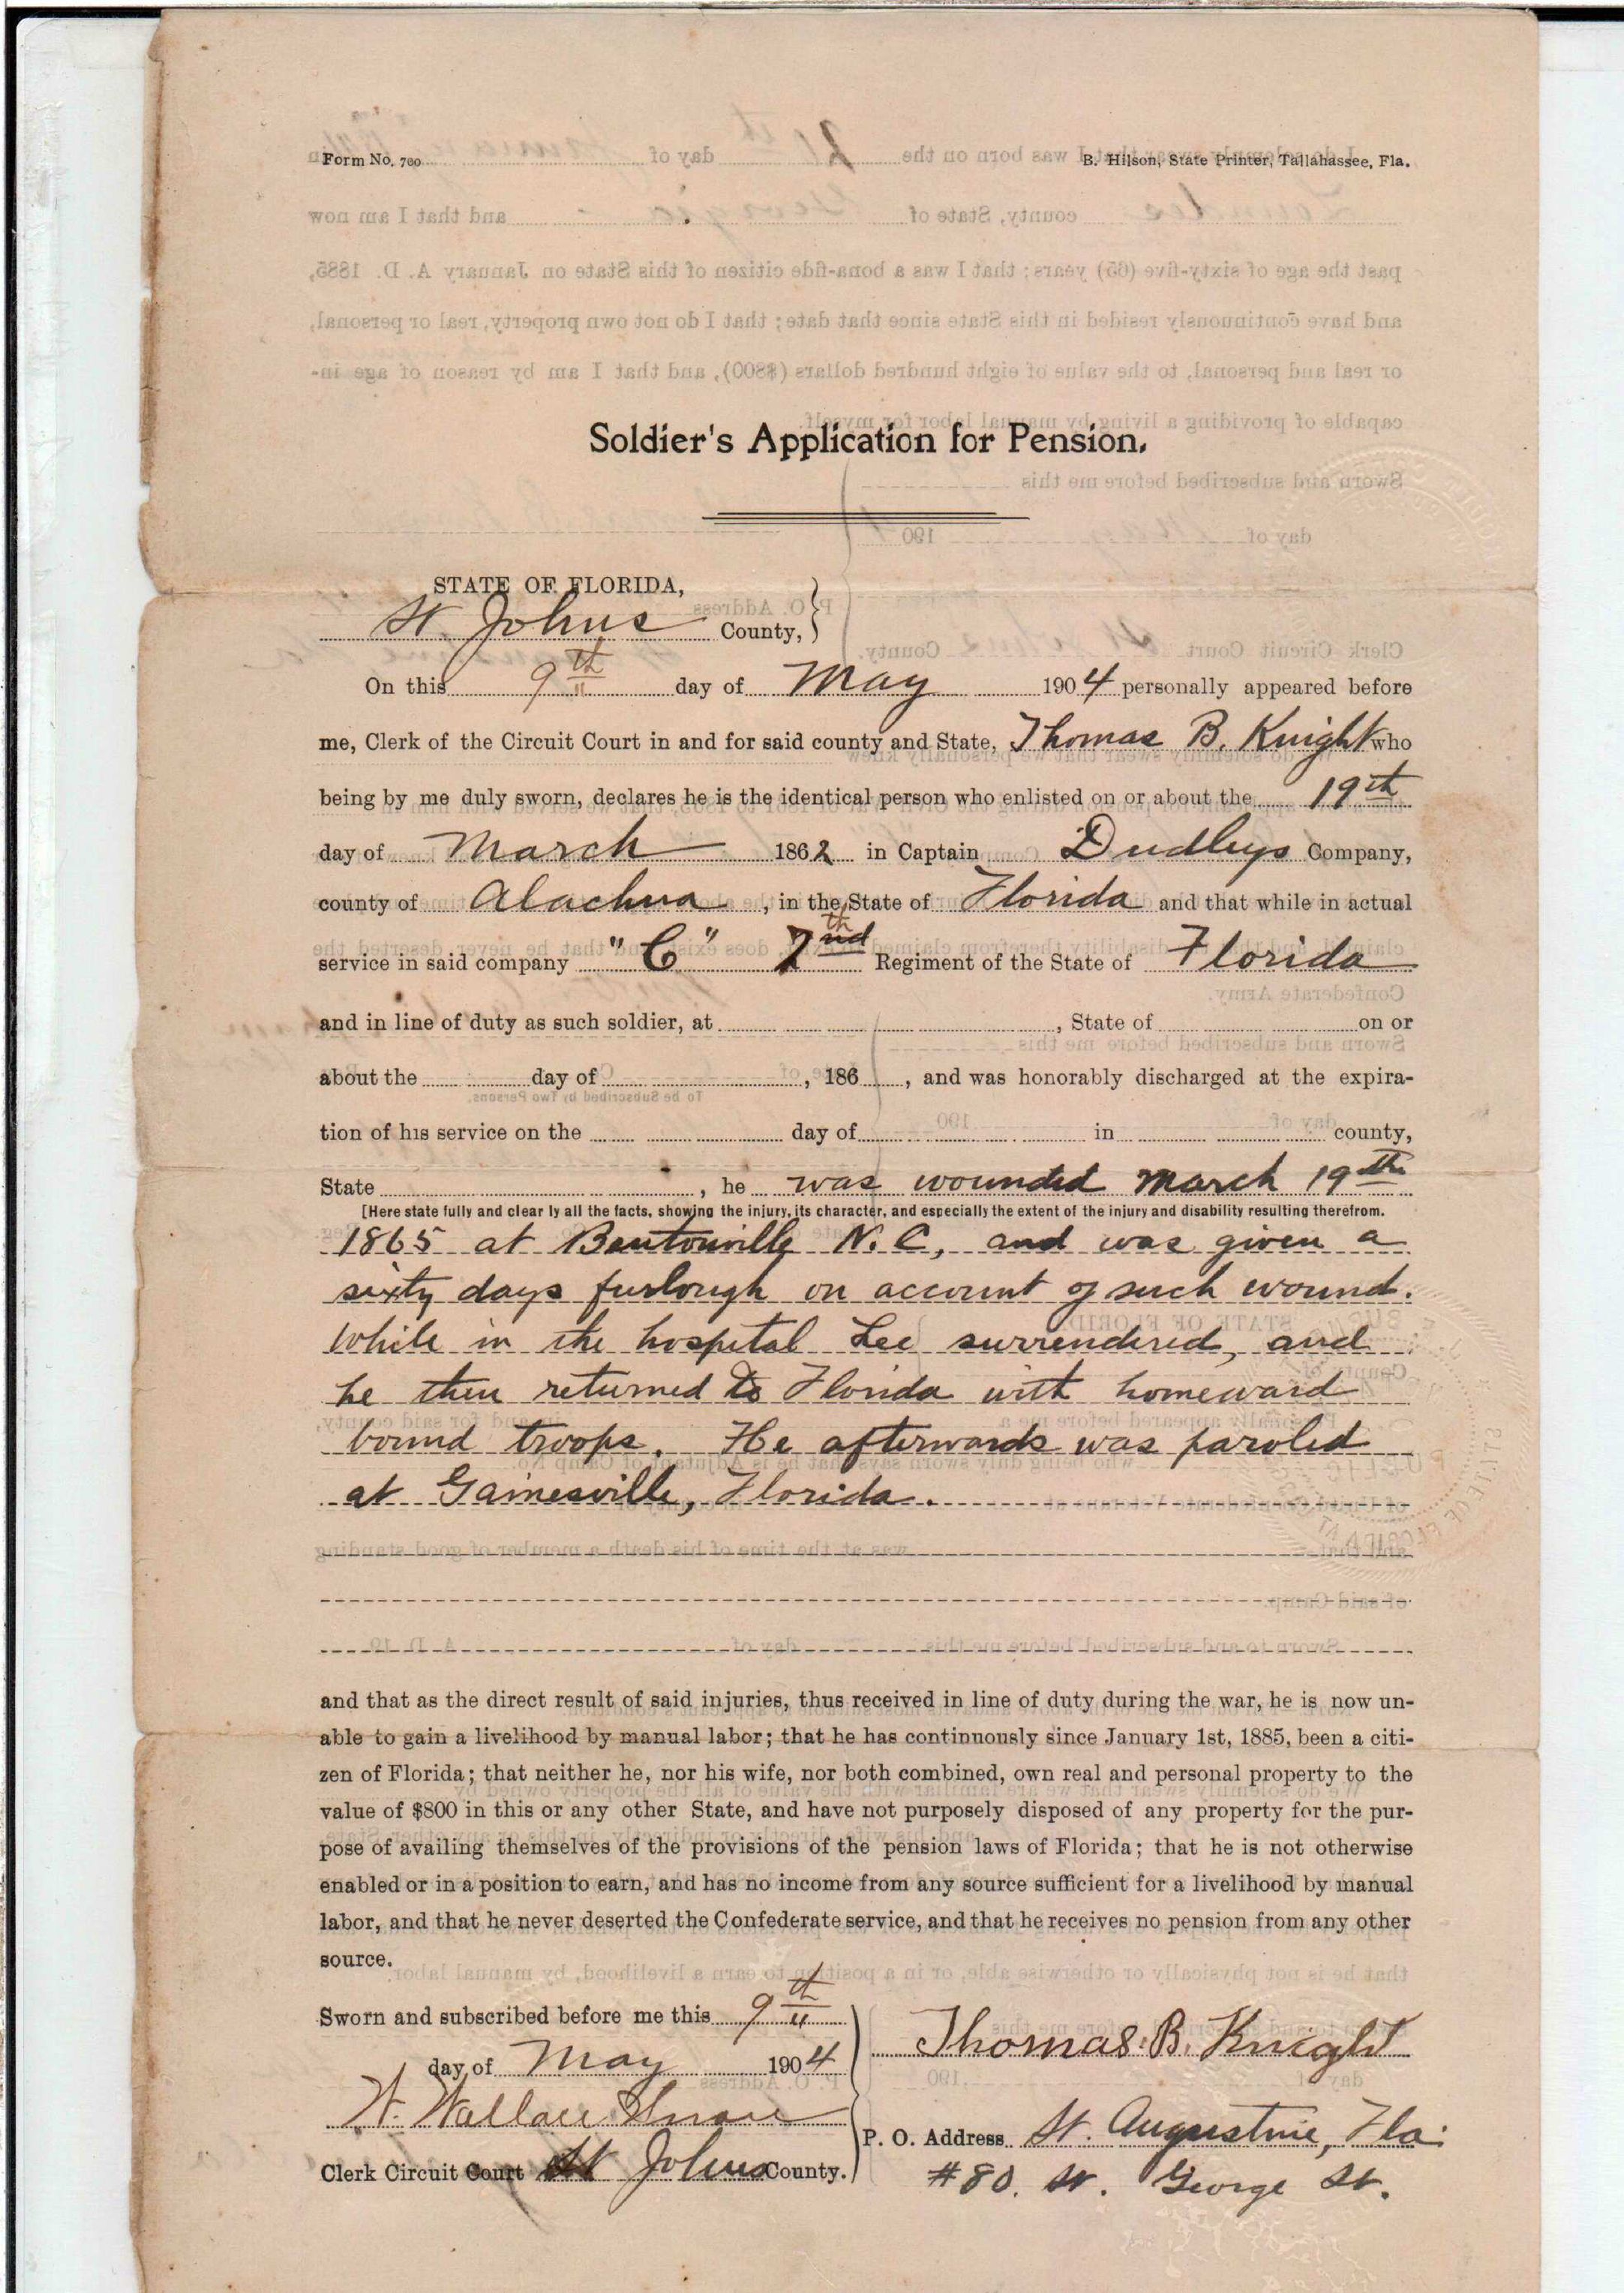 Form No. 700 B. Hilson, State Printer, Tallahassee, Fla.
Soldier's Application for Pension.
STATE OF FLORIDA,
St. Johns County,
On this 9th day of May 1904 personally appeared before
me, Clerk of the Circuit Court in and for said county and State, Thomas B. Knight who
being by me duly sworn, declares he is the identical person who enlisted on or about the 19th
day of March 1862 in Captain Dudleys Company,
county of Alachua, in the State of Florida and that while in actual
service in said company "C" 7th Regiment of the State of Florida
and in line of duty as such soldier, at , State of on or
about the day of , 186 , and was honorably discharged at the expira-
tion of his service on the day of in county,
State , he was wounded March 19th
[Here state fully and clear ly all the facts, showing the injury, its character, and especially the extent of the injury and disability resulting therefrom.
1865 at Bentonville N.C, and was given a
sixty days furlough on account of such wound.
While in the hospital Lee surrendered, and
he then returned to Florida with homeward
bound troops. He afterwards was paroled
at Gainesville, Florida.
and that as the direct result of said injuries, thus received in line of duty during the war, he is now un-
able to gain a livelihood by manual labor; that he has continuously since January 1st, 1885, been a citi-
zen of Florida; that neither he, nor his wife, nor both combined, own real and personal property to the
value of $800 in this or any other State, and have not purposely disposed of any property for the pur-
pose of availing themselves of the provisions of the pension laws of Florida; that he is not otherwise
enabled or in a position to earn, and has no income from any source sufficient for a livelihood by manual
labor, and that he never deserted the Confederate service, and that he receives no pension from any other
source.
Sworn and subscribed before me this 9th
day of May 1904
Thomas B. Knight
W. Wallace Snow
P. O. Address St. Augustine, Fla.
Clerk Circuit Court St Johns County.
#80. St. George St.